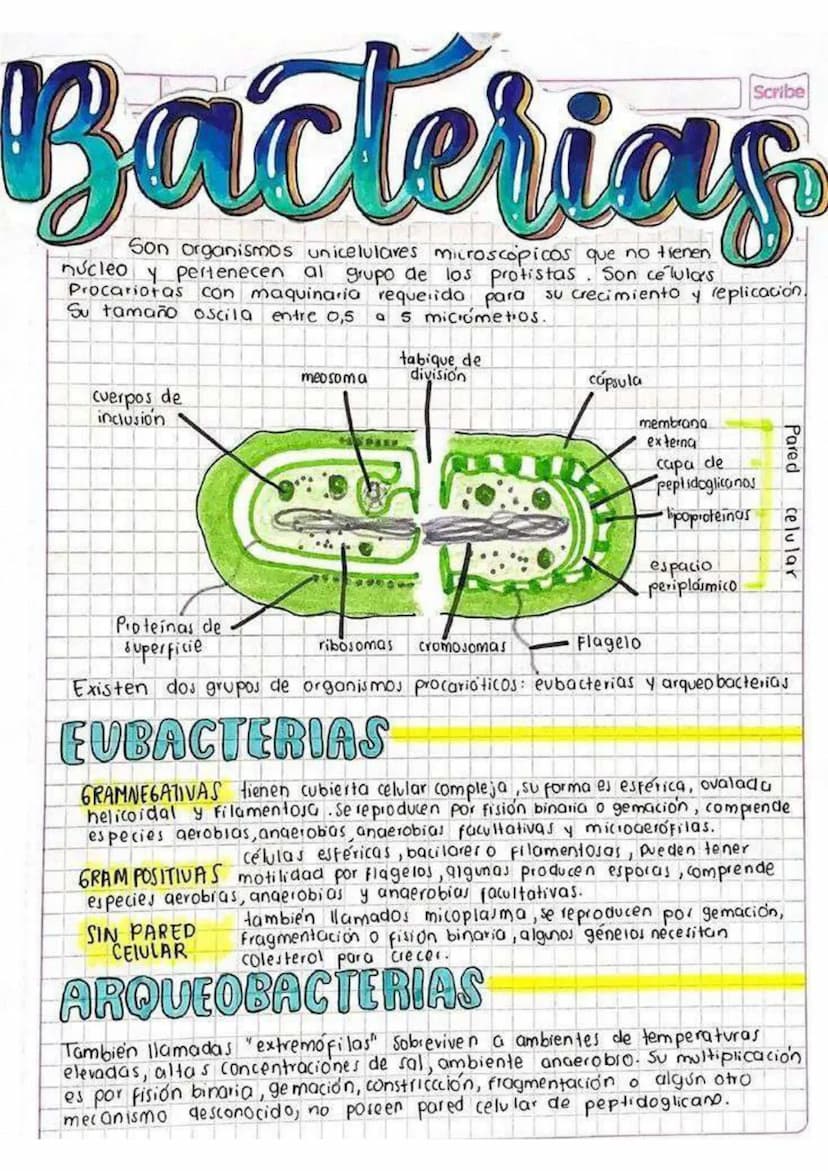 Bacterias
Scribe
Son organismos unicelulares microscópicos que no tienen
núcleo y pertenecen al grupo de los protistas. Son células
Procariotas con maquinaria requerida para su crecimiento y replicación.
Su tamaño oscila entre 0,5 a 5 micrómetros.
tabique de
división
meosoma
cápsula
cuerpos de
inclusión
membrana
externa
capa de
peptidoglicanos
lipoproteínas
espacio
periplásmico
Pared celular
Proteínas de
superficie
ribosomas
cromosomas
Flagelo
Existen dos grupos de organismos procarióticos: eubacterias y arqueobacterias
EUBACTERIAS
GRAMNEGATIVAS tienen cubierta celular compleja, su forma es esférica, ovalada
helicoidal y filamentosa. Se reproducen por fisión binaria o gemación, comprende
especies aerobias, anaerobias, anaerobias facultativas y microaerófilas.
células esféricas, bacilares o filamentosas, pueden tener
GRAM POSITIVAS motilidad por flagelos, algunas producen esporas, comprende
especies aerobias, anaerobias y anaerobias facultativas.
SIN PARED
CELULAR
también llamados micoplasma, se reproducen por gemación,
fragmentación o fisión binaria, algunos géneros necesitan
colesterol para crecer.
ARQUEOBACTERIAS
También llamadas "extremófilas" sobreviven a ambientes de temperaturas
elevadas, altas concentraciones de sal, ambiente anaerobio. Su multiplicación
es por fisión binaria, gemación, constricción, fragmentación o algún otro
mecanismo desconocido, no poseen pared celular de peptidoglicano.